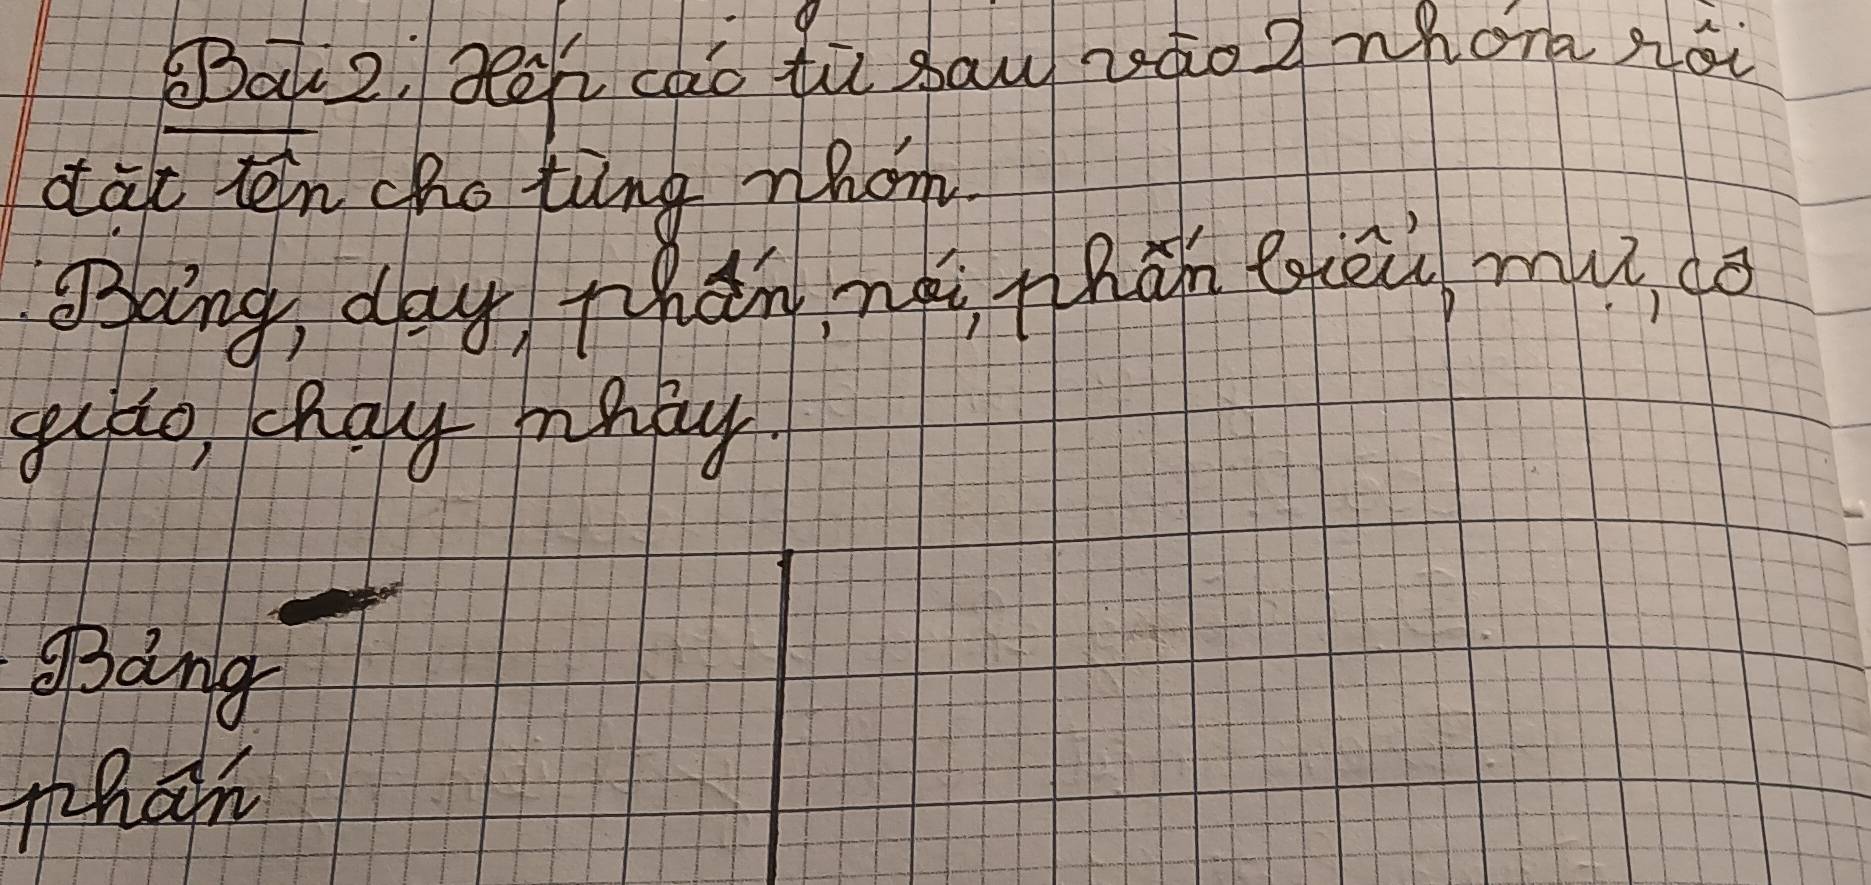 Bài 2: Xếp các từ sau vào 2 nhóm rồi
đặt tên cho từng nhóm.
Bảng, dạy, phấn, nói, phấn biểu, mũ, cô
giáo, chạy nhảy.
Bảng
phấn